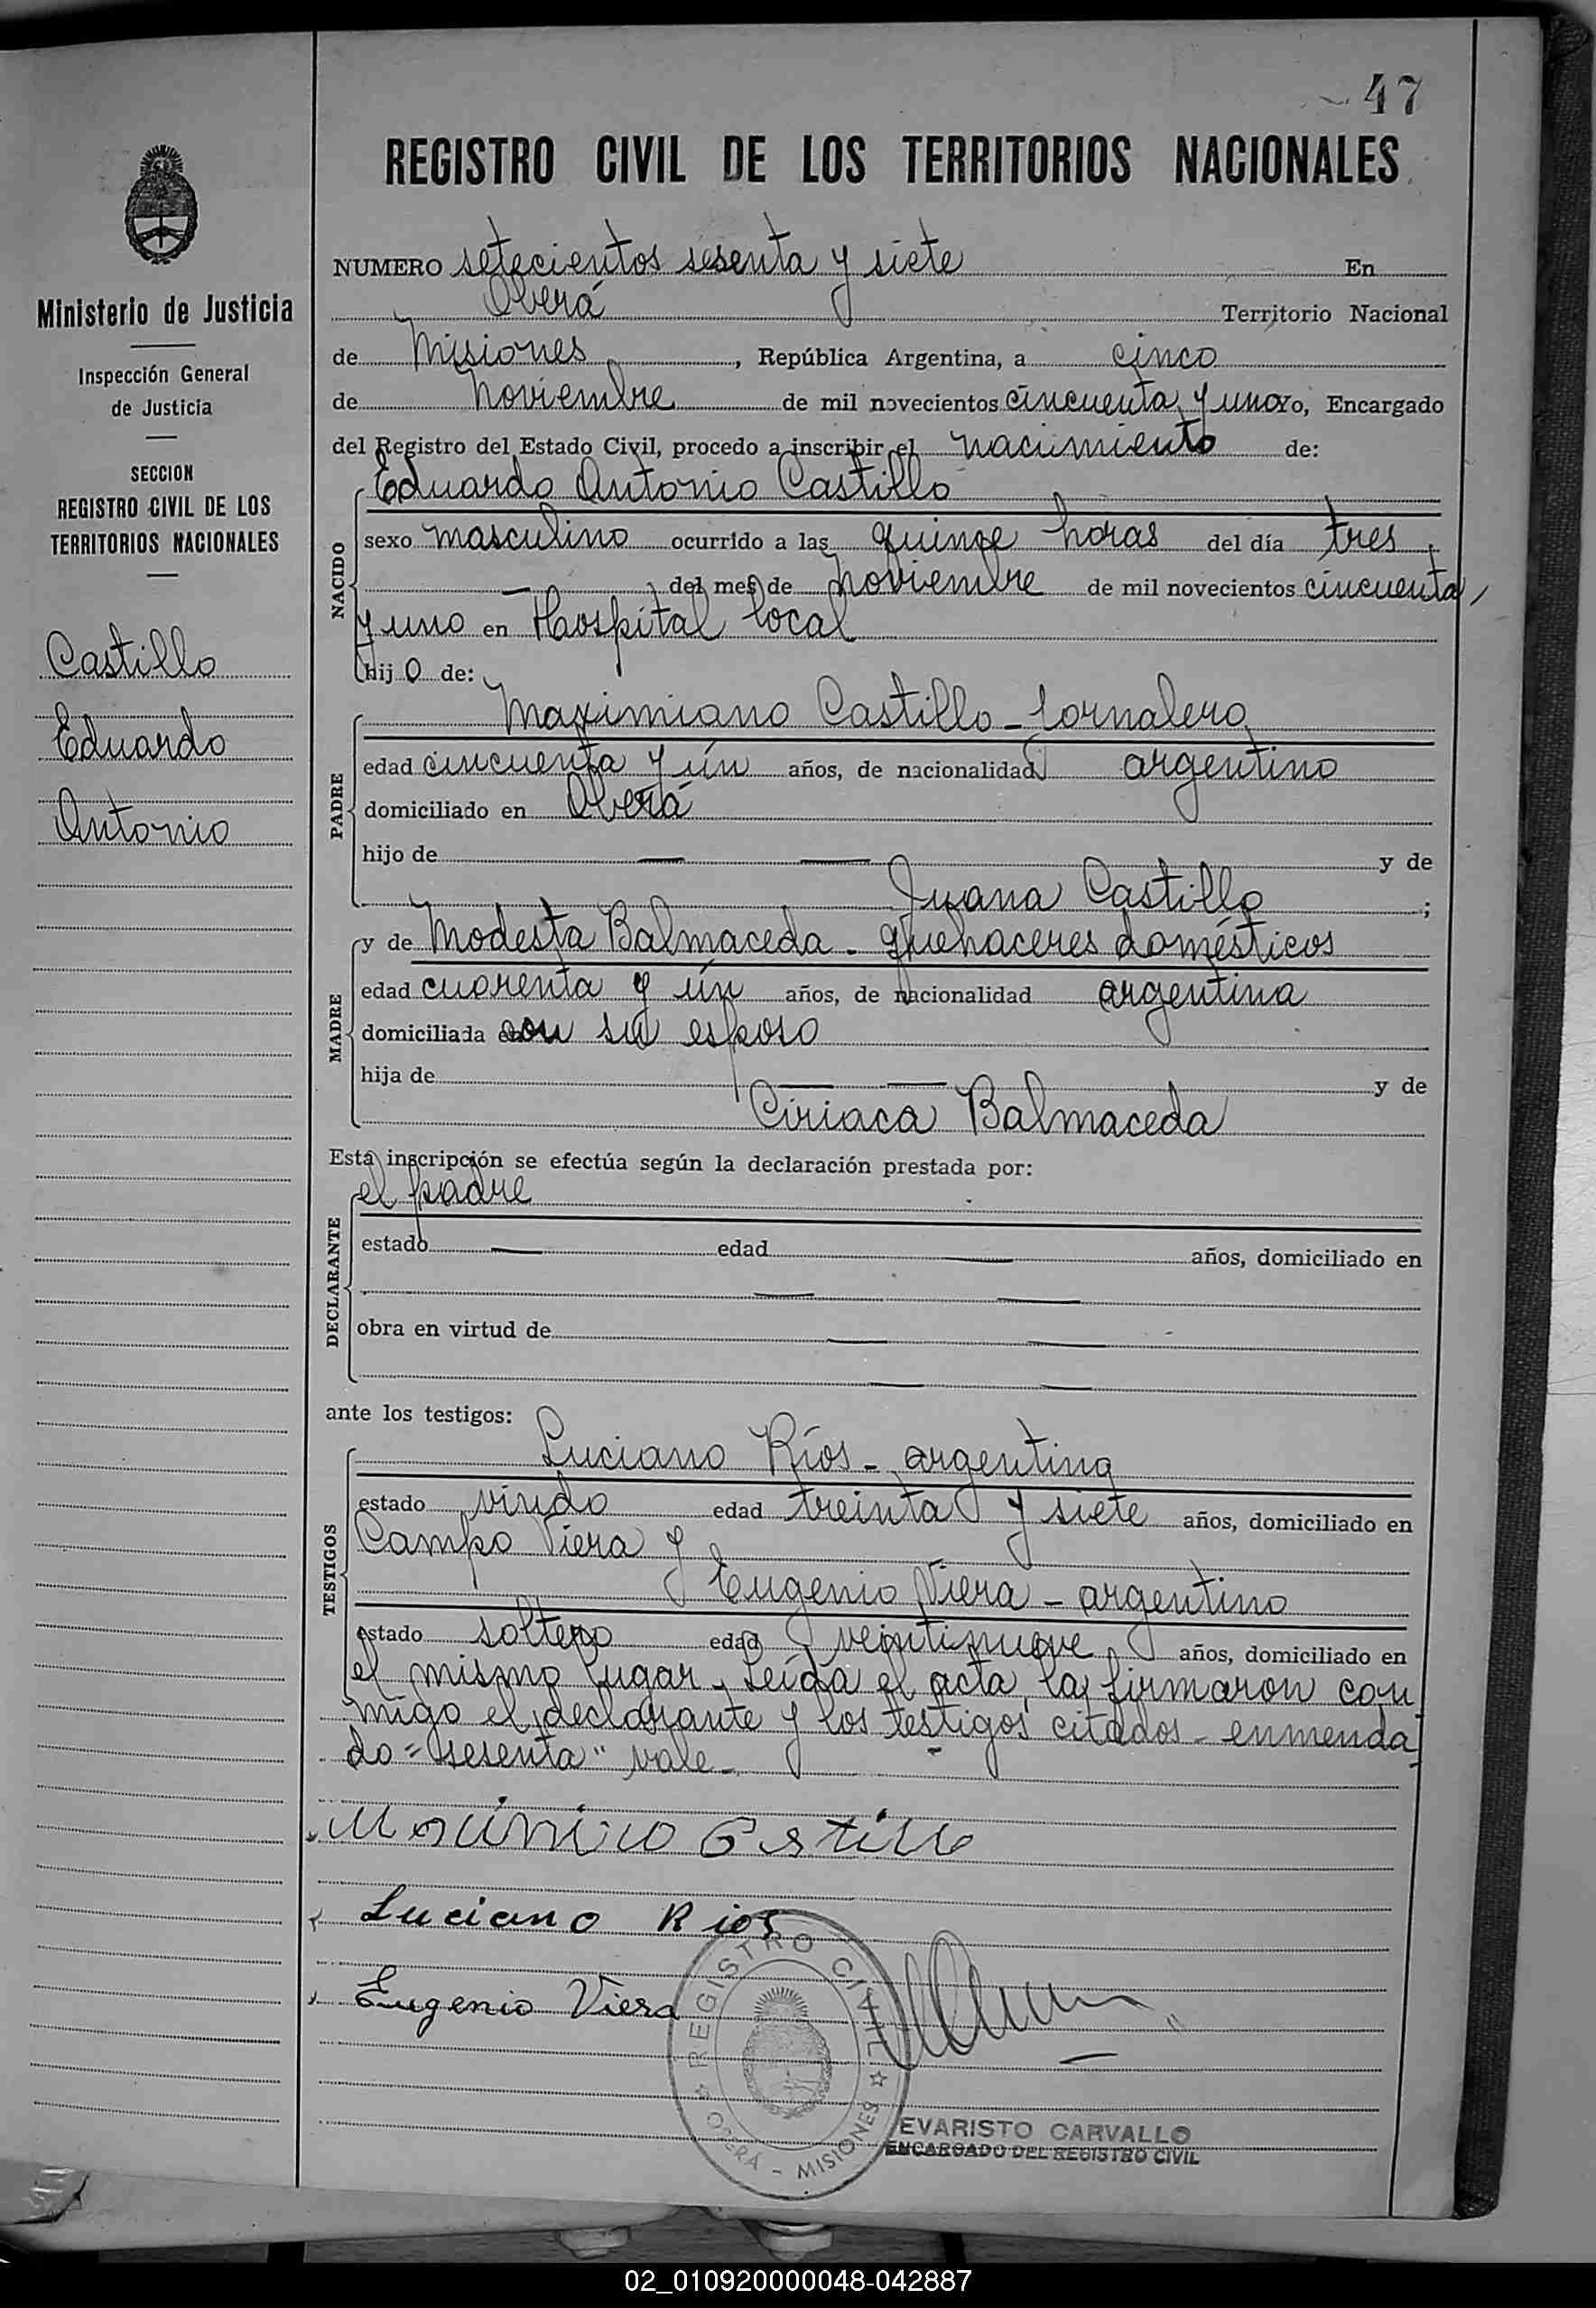 47
REGISTRO CIVIL DE LOS TERRITORIOS NACIONALES
Ministerio de Justicia
Inspección General
de Justicia
SECCION
REGISTRO CIVIL DE LOS
TERRITORIOS NACIONALES
Castillo
Eduardo
Antonio
NUMERO setecientos sesenta y siete En
Oberá Territorio Nacional
de Misiones, República Argentina, a cinco
de Noviembre de mil novecientos cincuenta y uno yo, Encargado
del Registro del Estado Civil, procedo a inscribir el nacimiento de:
NACIDO
Eduardo Antonio Castillo
sexo masculino ocurrido a las quince horas del día tres
— del mes de Noviembre de mil novecientos cincuenta
y uno en Hospital local
hijo de:
PADRE
Maximiano Castillo - Jornalero
edad cincuenta y ún años, de nacionalidad argentino
domiciliado en Oberá
hijo de — — y de
Juana Castillo ;
MADRE
y de Modesta Balmaceda - quehaceres domésticos
edad cuarenta y ún años, de nacionalidad argentina
domiciliada con su esposo
hija de — — y de
Ciriaca Balmaceda
Esta inscripción se efectúa según la declaración prestada por:
DECLARANTE
el padre
estado — edad — años, domiciliado en
— —
obra en virtud de — —
— —
ante los testigos:
TESTIGOS
Luciano Ríos - argentino
estado viudo edad treinta y siete años, domiciliado en
Campo Viera y
Eugenio Viera - argentino
estado soltero edad veintinueve años, domiciliado en
el mismo lugar. Leída el acta, la firmaron con
migo el declarante y los testigos citados - enmenda
do = "sesenta" vale -
Maximiano Castillo
Luciano Rios
Eugenio Viera
REGISTRO CIVIL
OBERÁ - MISIONES
EVARISTO CARVALLO
ENCARGADO DEL REGISTRO CIVIL
02_010920000048-042887